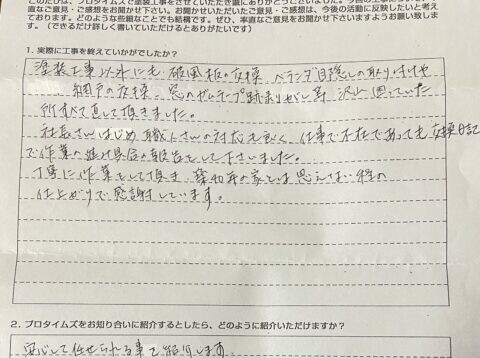 このたびは、プロタイムズで塗装工事をさせていただき誠にありがとうございました。今回の工事に
直なご意見・ご感想をお聞かせ下さい。お聞かせいただいたご意見・ご感想は、今後の活動に反映したいと考え
ております。どのような些細なことでも結構です。ぜひ、率直なご意見をお聞かせ下さいますようお願い致しま
す。（できるだけ詳しく書いていただけるとありがたいです）
1. 実際に工事を終えていかがでしたか？
塗装工事以外にも、破風板の交換、ベランダ目隠しの取り付けや
網戸の交換、窓のガムテープ跡まりがし等 沢山困っていた
所すべて直して頂きました。
社長さんはじめ、職人さんの対応も良く、仕事で不在であっても交換日記
で作業の進み具合の報告をして下さいました。
丁寧に作業をして頂き、築40年の家とは思えない程の
仕上がりで感謝しています。
2. プロタイムズをお知り合いに紹介するとしたら、どのように紹介いただけますか？
安心して任せられる事で紹介します。